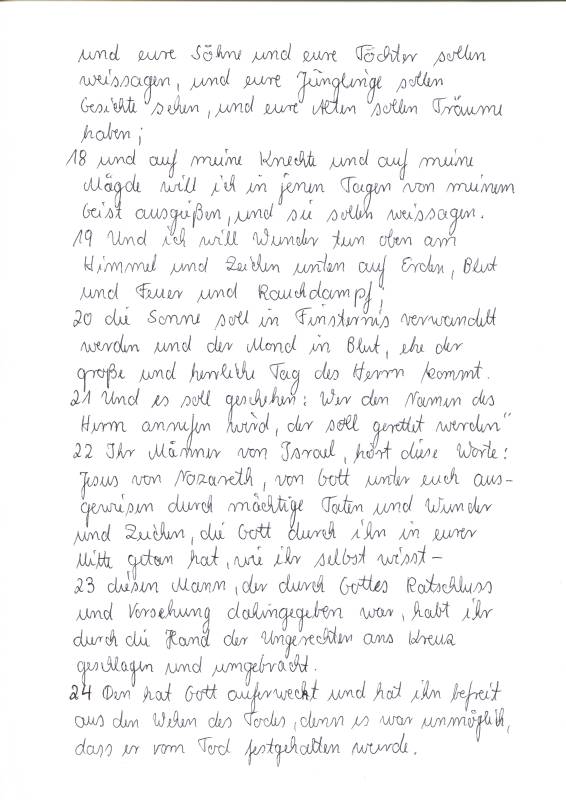 und eure Söhne und eure Töchter sollen
weissagen, und eure Jünglinge sollen
Gesichte sehen, und eure Alten sollen Träume
haben;
18 und auf meine Knechte und auf meine
Mägde will ich in jenen Tagen von meinem
Geist ausgießen, und sie sollen weissagen.
19 Und ich will Wunder tun oben am
Himmel und Zeichen unten auf Erden, Blut
und Feuer und Rauchdampf;
20 die Sonne soll in Finsternis verwandelt
werden und der Mond in Blut, ehe der
große und herrliche Tag des Herrn kommt.
21 Und es soll geschehen: Wer den Namen des
Herrn anrufen wird, der soll gerettet werden"
22 Ihr Männer von Israel, hört diese Worte:
Jesus von Nazareth, von Gott unter euch aus-
gewiesen durch mächtige Taten und Wunder
und Zeichen, die Gott durch ihn in eurer
Mitte getan hat, wie ihr selbst wisst-
23 diesen Mann, der durch Gottes Ratschluss
und Vorsehung dahingegeben war, habt ihr
durch die Hand der Ungerechten ans Kreuz
geschlagen und umgebracht.
24 Den hat Gott auferweckt und hat ihn befreit
aus den Wehen des Todes, denn es war unmöglich,
dass er vom Tod festgehalten wurde.